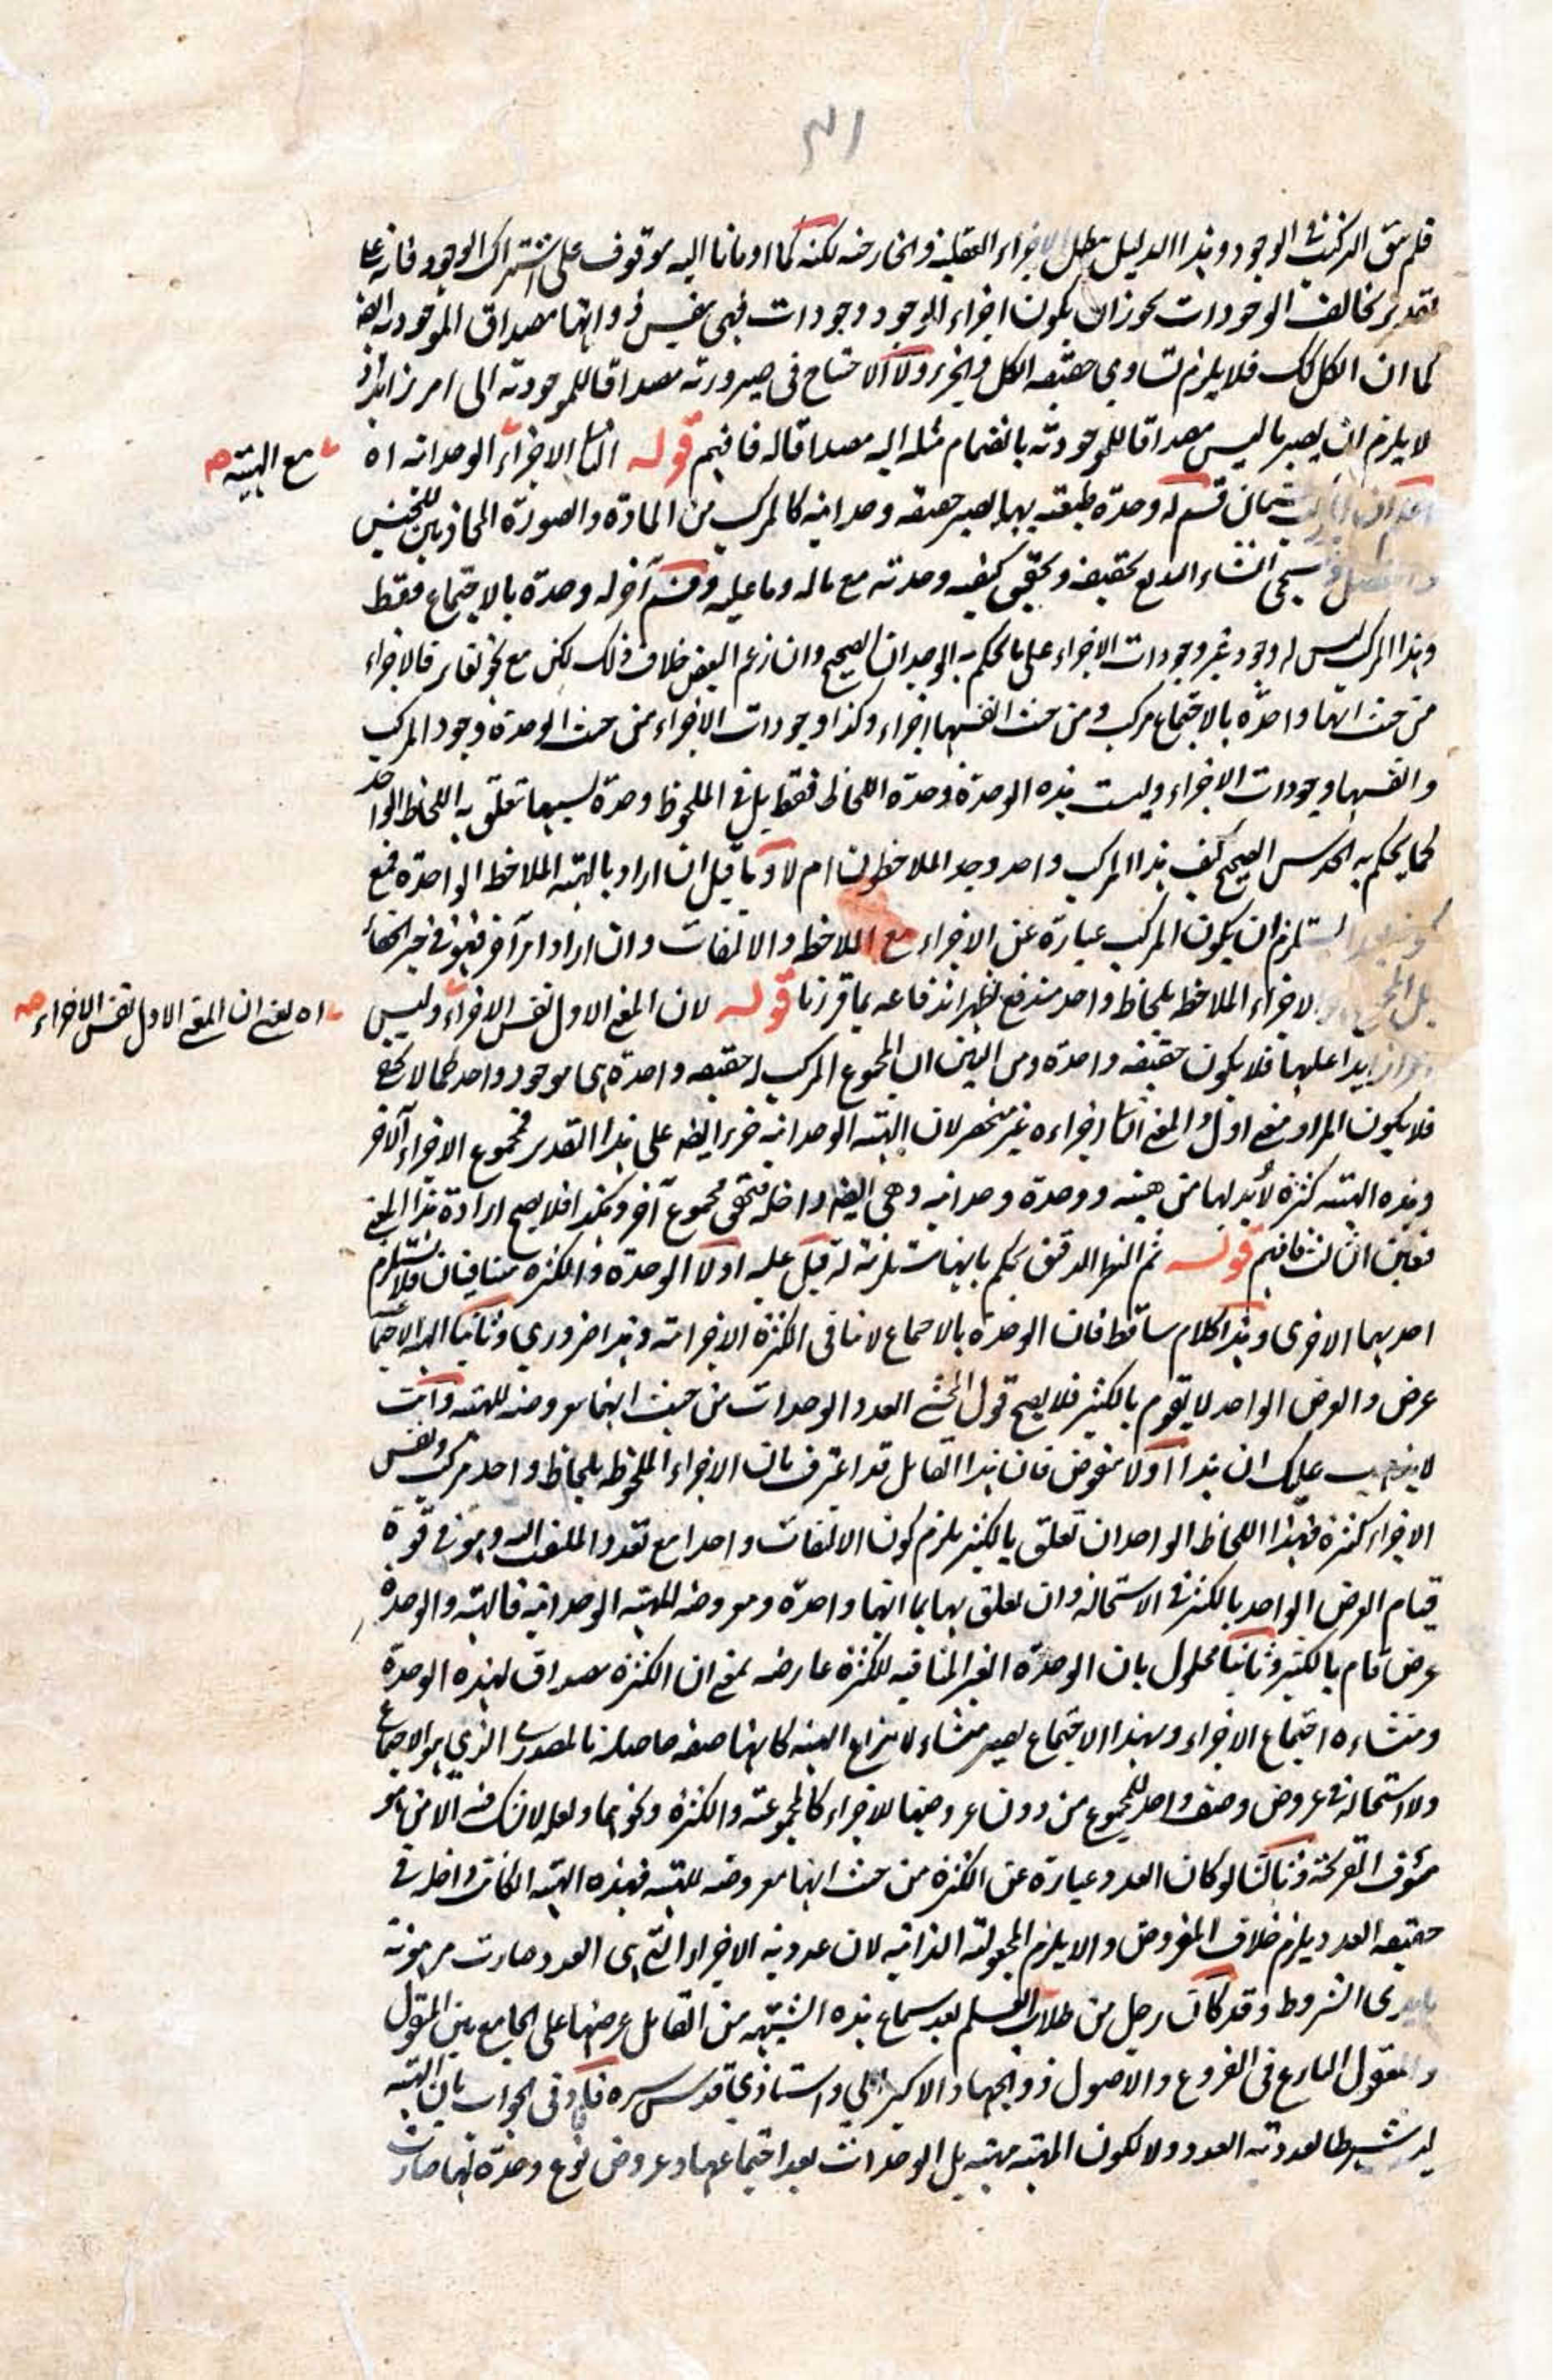 ٣١
فلم يبق التركيب في الوجود وهذا الدليل يبطل الاجزاء العقلية والخارجية لكنه كما اومانا اليه موقوف على اشتراك الوجود فانه على
تقدير تخالف الوجودات يجوز ان يكون اجزاء للوجود وجودات فهي بنفس ذواتها مصداق الموجودية ايضا
كما ان الكل كك فلا يلزم تساوي حقيقة الكل والجزء ولا الاحتياج في صيرورته مصداقا للموجودية الى امر زائد اذ
لا يلزم ان يصير ما ليس مصداقا للموجودية بانضمام مثله اليه مصداقا له فافهم قوله الثاني الاجزاء الوحدانية اه
مع الهيئة
قسم له وحدة طبيعية بها يصير حقيقة وحدانية كالمركب من المادة والصورة المحاذيين للجنس
سيجئ انشاء الله تع تحقيقه وتحقيق كيفية وحدته مع ماله وما عليه وقسم آخر له وحدة بالاجتماع فقط
وهذا المركب ليس له وجود غير وجودات الاجزاء على ما يحكم به الوجدان الصحيح وان زعم البعض خلاف ذلك لكن مع نحو تغاير فالاجزاء
من حيث انها واحدة بالاجتماع مركب ومن حيث انفسها اجزاء وكذا وجودات الاجزاء من حيث الوحدة وجود المركب
وانفسها وجودات الاجزاء وليست هذه الوحدة وحدة اللحاظ فقط بل في الملحوظ وحدة بسببها تعلق به اللحاظ الواحد
كما يحكم به الحدس الصحيح كيف هذا المركب واحد وجد الملاحظون ام لا وما قيل ان اراد بالهيئة الملاحظة الواحدة فمع
يستلزم ان يكون المركب عبارة عن الاجزاء مع الملاحظة والالتفات وان اراد امرا آخر فهو في حيز الخفاء
الاجزاء الملاحظة بلحاظ واحد مندفع لظهر اندفاعه بما قررنا قوله لان المعنى الاول نفس الاجزاء وليس
اه يعني ان المعنى الاول نفس الاجزاء
زايدا عليها فلا يكون حقيقة واحدة ومن البين ان المجموع المركب له حقيقة واحدة هي موجود واحد كما لا يخفى
فلا يكون المراد معنى اول والمعنى الثاني اجزاءه غير منحصر لان الهيئة الوحدانية جزء ايضا على هذا التقدير فمجموع الاجزاء الاخر
وهذه الهيئة كثرة لا بد لها من هيئة ووحدة وحدانية وهي ايضا داخلة فتحقق مجموع آخر وهكذا فلا يصح ارادة هذا المعنى
فتعين الثالث فافهم قوله ثم النظر الدقيق يحكم بانها مستلزمة له قيل عليه اولا الوحدة والكثرة متنافيان فلا تستلزم
احديهما الاخرى وهذا كلام ساقط فان الوحدة بالاجتماع لا تنافي الكثرة الاجزائية وهذا ضروري وثانيا الهيئة الاجتماعية
عرض والعرض الواحد لا يقوم بالكثير فلا يصح قول المحشي العدد الوحدات من حيث انها معروضة للهيئة وانت
لا يذهب عليك ان هذا اولا منقوض فان هذا القائل قد اعترف بان الاجزاء الملحوظة بلحاظ واحد مركب ونفس
الاجزاء كثرة فهذا اللحاظ الواحد ان تعلق بالكثير يلزم كون الالتفات واحدا مع تعدد الملتفت اليه وهو في قوة
قيام العرض الواحد بالكثير في الاستحالة وان تعلق بها بما انها واحدة ومعروضة للهيئة الوحدانية فالهيئة والوحدة
عرض قام بالكثير وثانيا محلول بان الوحدة الغير المنافية للكثرة عارضة بمعنى ان الكثرة مصداق لهذه الوحدة
ومنشاءه اجتماع الاجزاء وبهذا الاجتماع يصير منشاء لانتزاع الهيئة كانها صفة حاصلة بالمصدر الذي هو الاجتماع
ولا استحالة في عروض وصف واحد للمجموع من دون عروضها للاجزاء كالمجموعية والكثرة ونحوهما ولعله لا يشك فيه الا من هو
مئوف القريحة وثالثا لو كان العدد عبارة عن الكثرة من حيث انها معروضة للهيئة فهذه الهيئة ان كانت داخلة في
حقيقة العدد يلزم خلاف المفروض والا يلزم المجعولية الذاتية لان عددية الاجزاء التي هي العدد صارت مرهونة
الشروط وقد كان رجل من طلاب العلم بعد سماع هذه الشبهة من القائل عرضها على الجامع بين المنقول
والمعقول البارع في الفروع والاصول ذو الجهاد الاكبر ابي واستاذي قدس سره فافاد في الجواب بان الهيئة
ليست شرطا لعددية العدد ولا لكون المهية مهية بل الوحدات بعد اجتماعها وعروض نوع وحدة لها صارت